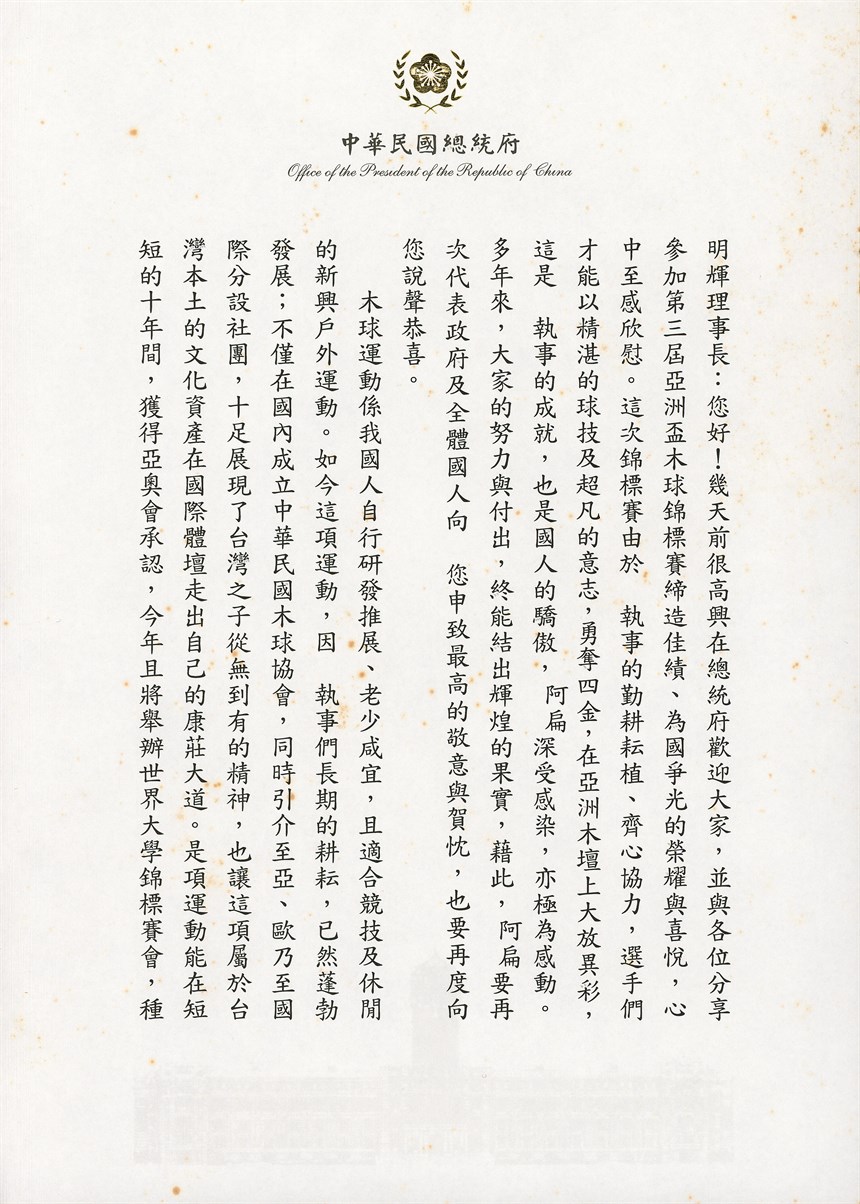 中華民國總統府
Office of the President of the Republic of China
明輝理事長：您好！幾天前很高興在總統府歡迎大家，並與各位分享
參加第三屆亞洲盃木球錦標賽締造佳績、為國爭光的榮耀與喜悅，心
中至感欣慰。這次錦標賽由於　執事的勤耕耘植、齊心協力，選手們
才能以精湛的球技及超凡的意志，勇奪四金，在亞洲木壇上大放異彩，
這是　執事的成就，也是國人的驕傲，阿扁深受感染，亦極為感動。
多年來，大家的努力與付出，終能結出輝煌的果實，藉此，阿扁要再
次代表政府及全體國人向　您申致最高的敬意與賀忱，也要再度向
您說聲恭喜。
木球運動係我國人自行研發推展、老少咸宜，且適合競技及休閒
的新興戶外運動。如今這項運動，因　執事們長期的耕耘，已然蓬勃
發展；不僅在國內成立中華民國木球協會，同時引介至亞、歐乃至國
際分設社團，十足展現了台灣之子從無到有的精神，也讓這項屬於台
灣本土的文化資產在國際體壇走出自己的康莊大道。是項運動能在短
短的十年間，獲得亞奧會承認，今年且將舉辦世界大學錦標賽會，種